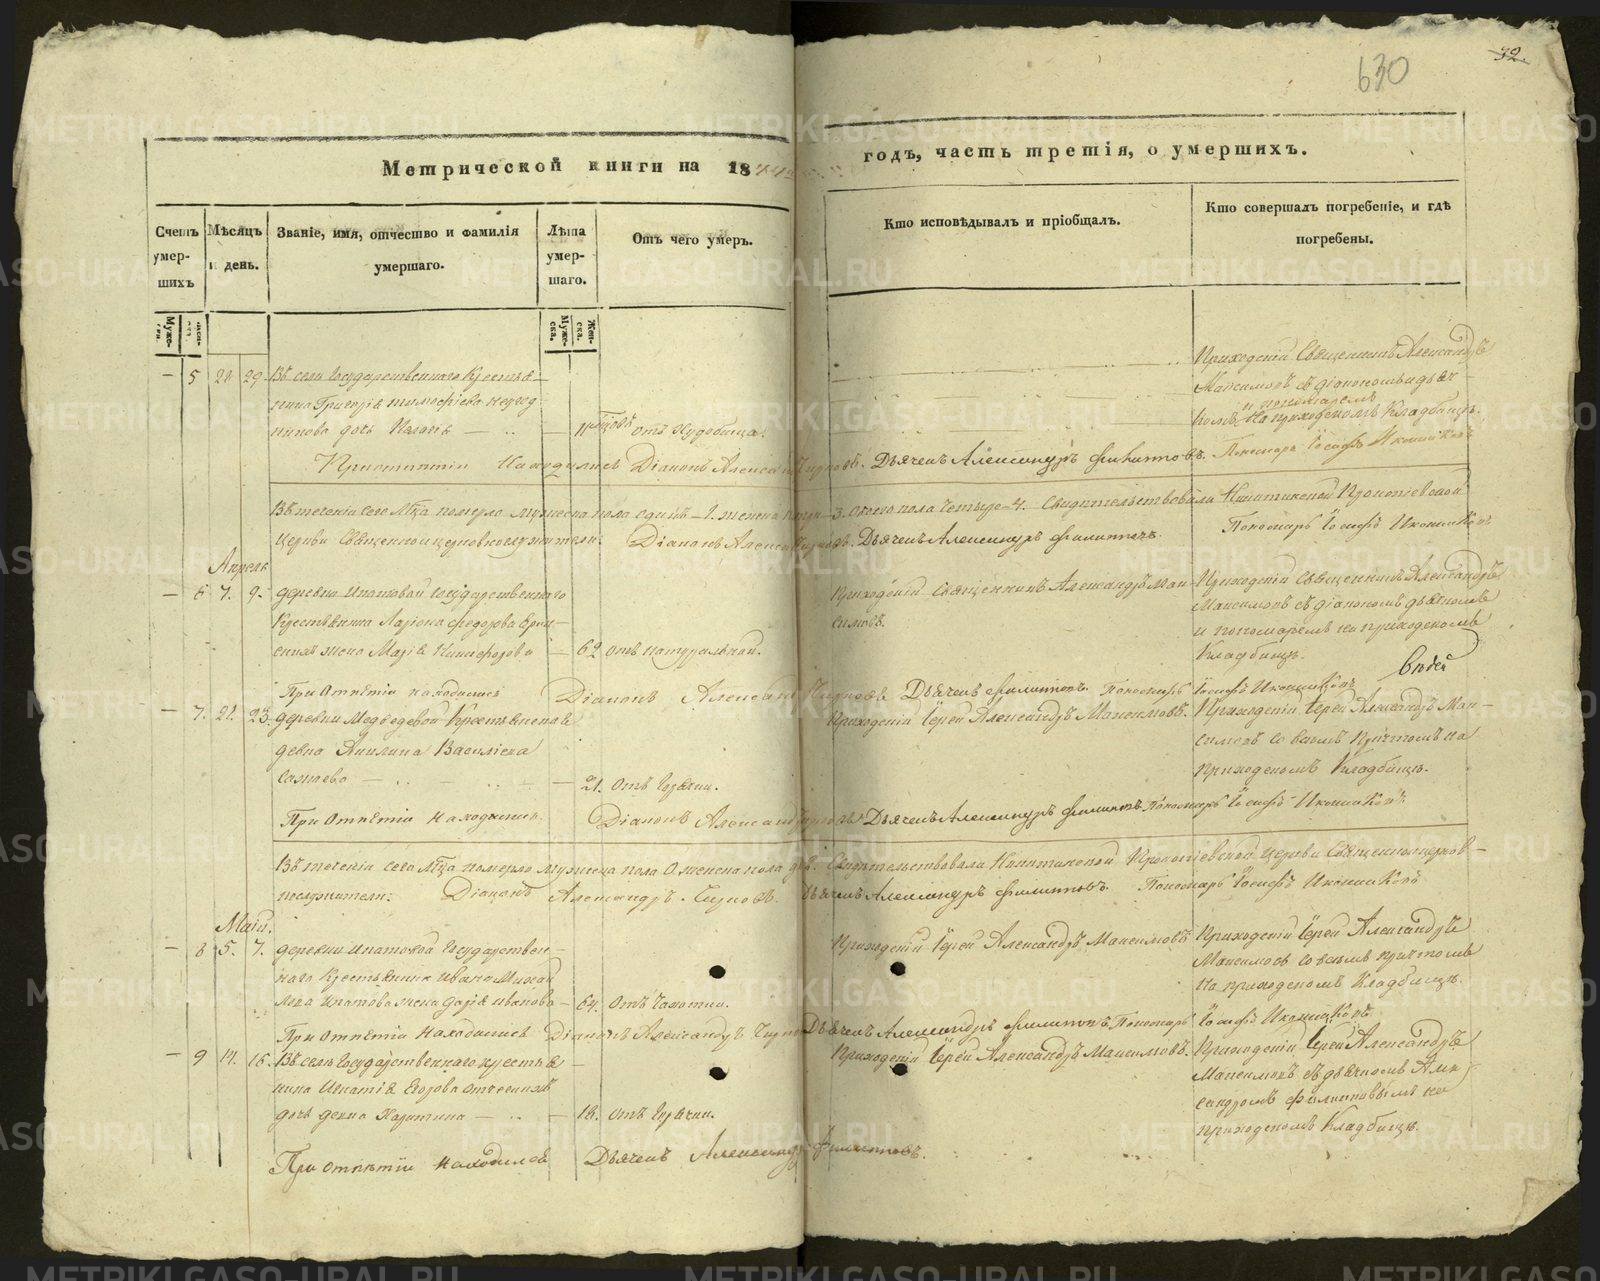 630
32.
Метрической книги на 1844
годъ, часть третія, о умершихъ.
Счетъ умер-шихъ
Мѣсяцъ и день.
Званіе, имя, отчество и фамилія умершаго.
Лѣта умер-шаго.
Отъ чего умеръ.
Кто исповѣдывалъ и пріобщалъ.
Кто совершалъ погребеніе, и гдѣ погребены.
Муже-ска.
Жен-ска.
5 28 29 Въ селѣ Государственнаго Крестья-
нина Григорія Тимофѣева
дочь
Приходскій Священникъ Александръ
Максимовъ съ діакономъ и дьяч-
и пономаремъ
комъ, на приходскомъ Кладбищѣ.
Діаконъ Александръ Чирковъ. Дьячекъ Александръ Филиповъ. Пономарь Іосифъ Иконниковъ
Въ теченіи сего Мца померло мужеска пола одинъ – 1. женска три – 3. обоего пола четыре – 4. Свидѣтельствовали
Церкви Священноцерковнослужители: Діаконъ Александръ Чирковъ. Дьячекъ Александръ Филиповъ. Пономарь Іосифъ Иконниковъ
Апрель
6 7. 9. деревни Ипатовой Государственнаго
Крестьянина Ларіона Федорова
жена Марія Никифорова – 62 отъ натуральной.
Приходскій Священникъ Александръ Мак-
симовъ.
Приходскій Священникъ Александръ
Максимовъ съ діакономъ дьячкомъ
и пономаремъ на приходскомъ
Кладбищѣ.
При отпѣтіи находились Діаконъ Александръ Чирковъ Дьячекъ Филиповъ. Пономарь Іосифъ Иконниковъ
7. 21. 23. деревни Медведевой Крестьянская
девка Акилина Васильева
– 21. Отъ Горячки.
Приходскій Іерей Александръ Максимовъ.
Приходскій Іерей Александръ Мак-
симовъ со всемъ Причтомъ на
приходскомъ Кладбищѣ.
При отпѣтіи находились Діаконъ Александръ Чирковъ Дьячекъ Александръ Филиповъ. Пономарь Іосифъ Иконниковъ
Въ теченіи сего Мца померло мужеска пола 0 женска пола двѣ. Свидѣтельствовали Прокопіевской Церкви Священноцерков-
нослужители: Діаконъ Александръ Чирковъ. Дьячекъ Александръ Филиповъ. Пономарь Іосифъ Иконниковъ
Маій.
8 5. 7. деревни Ипатовой Государствен-
наго Крестьянина Ивана Михай-
лова Ипатова жена Дарія Иванова – 64. Отъ Чахотки.
Приходскій Іерей Александръ Максимовъ
Приходскій Іерей Александръ
Максимовъ со всемъ причтомъ
на приходскомъ Кладбищѣ.
При отпѣтіи находились Діаконъ Александръ Чирковъ Дьячекъ Александръ Филиповъ. Пономарь Іосифъ Иконниковъ
9 14. 16. Въ селѣ Государственнаго крестья-
нина Игнатія Егорова
дочь девка Харитина – 18. Отъ Горячки.
Приходскій Іерей Александръ Максимовъ.
Приходскій Іерей Александръ
Максимовъ съ дьячкомъ Алек-
сандромъ Филиповымъ на
приходскомъ Кладбищѣ.
При отпѣтіи находился Дьячекъ Александръ Филиповъ.